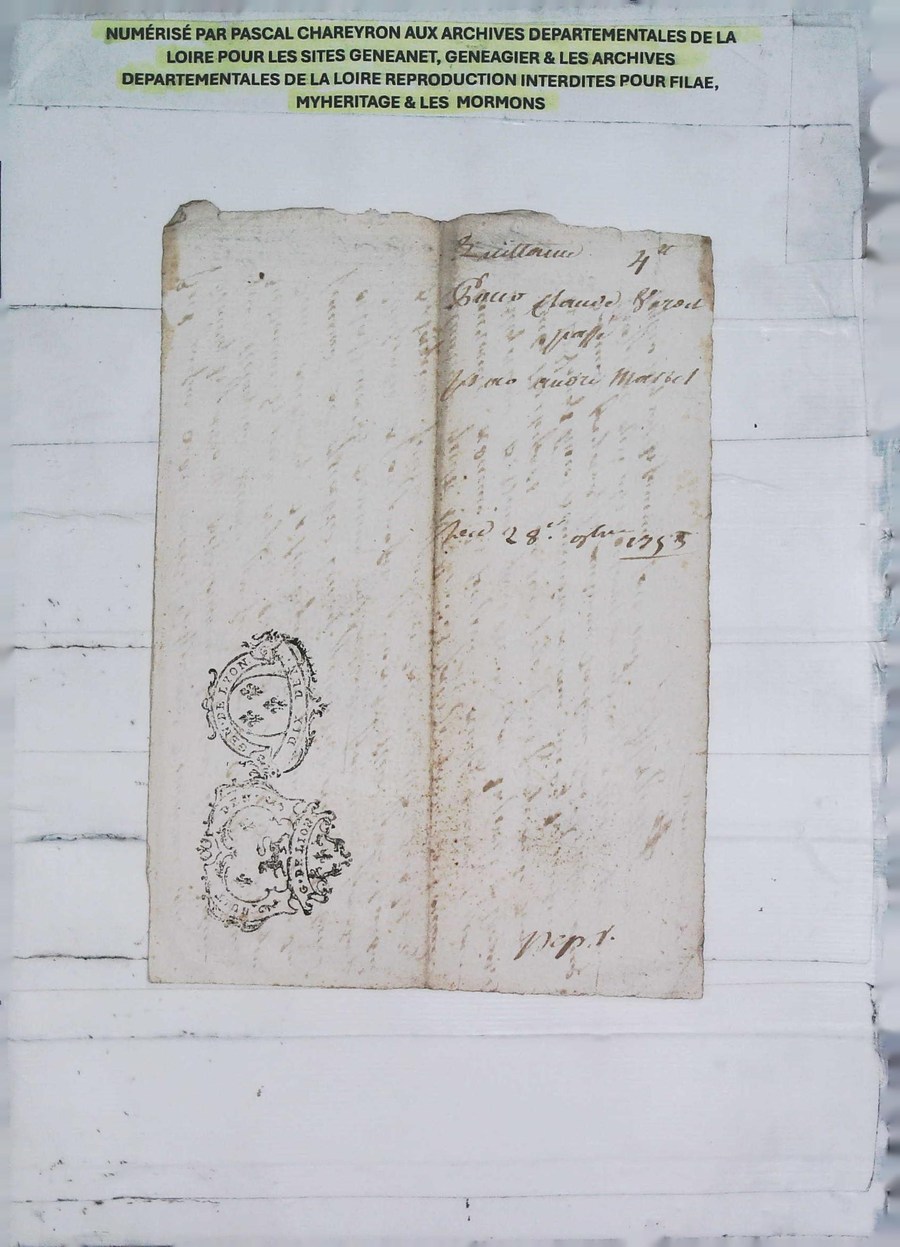 NUMÉRISÉ PAR PASCAL CHAREYRON AUX ARCHIVES DEPARTEMENTALES DE LA
LOIRE POUR LES SITES GENEANET, GENEAGIER & LES ARCHIVES
DEPARTEMENTALES DE LA LOIRE REPRODUCTION INTERDITES POUR FILAE,
MYHERITAGE & LES MORMONS
Quittance 4
Pour Claude
passé
par andré
28
GEN. DE LYON
DEN
G. DE LION
HUIT DEN